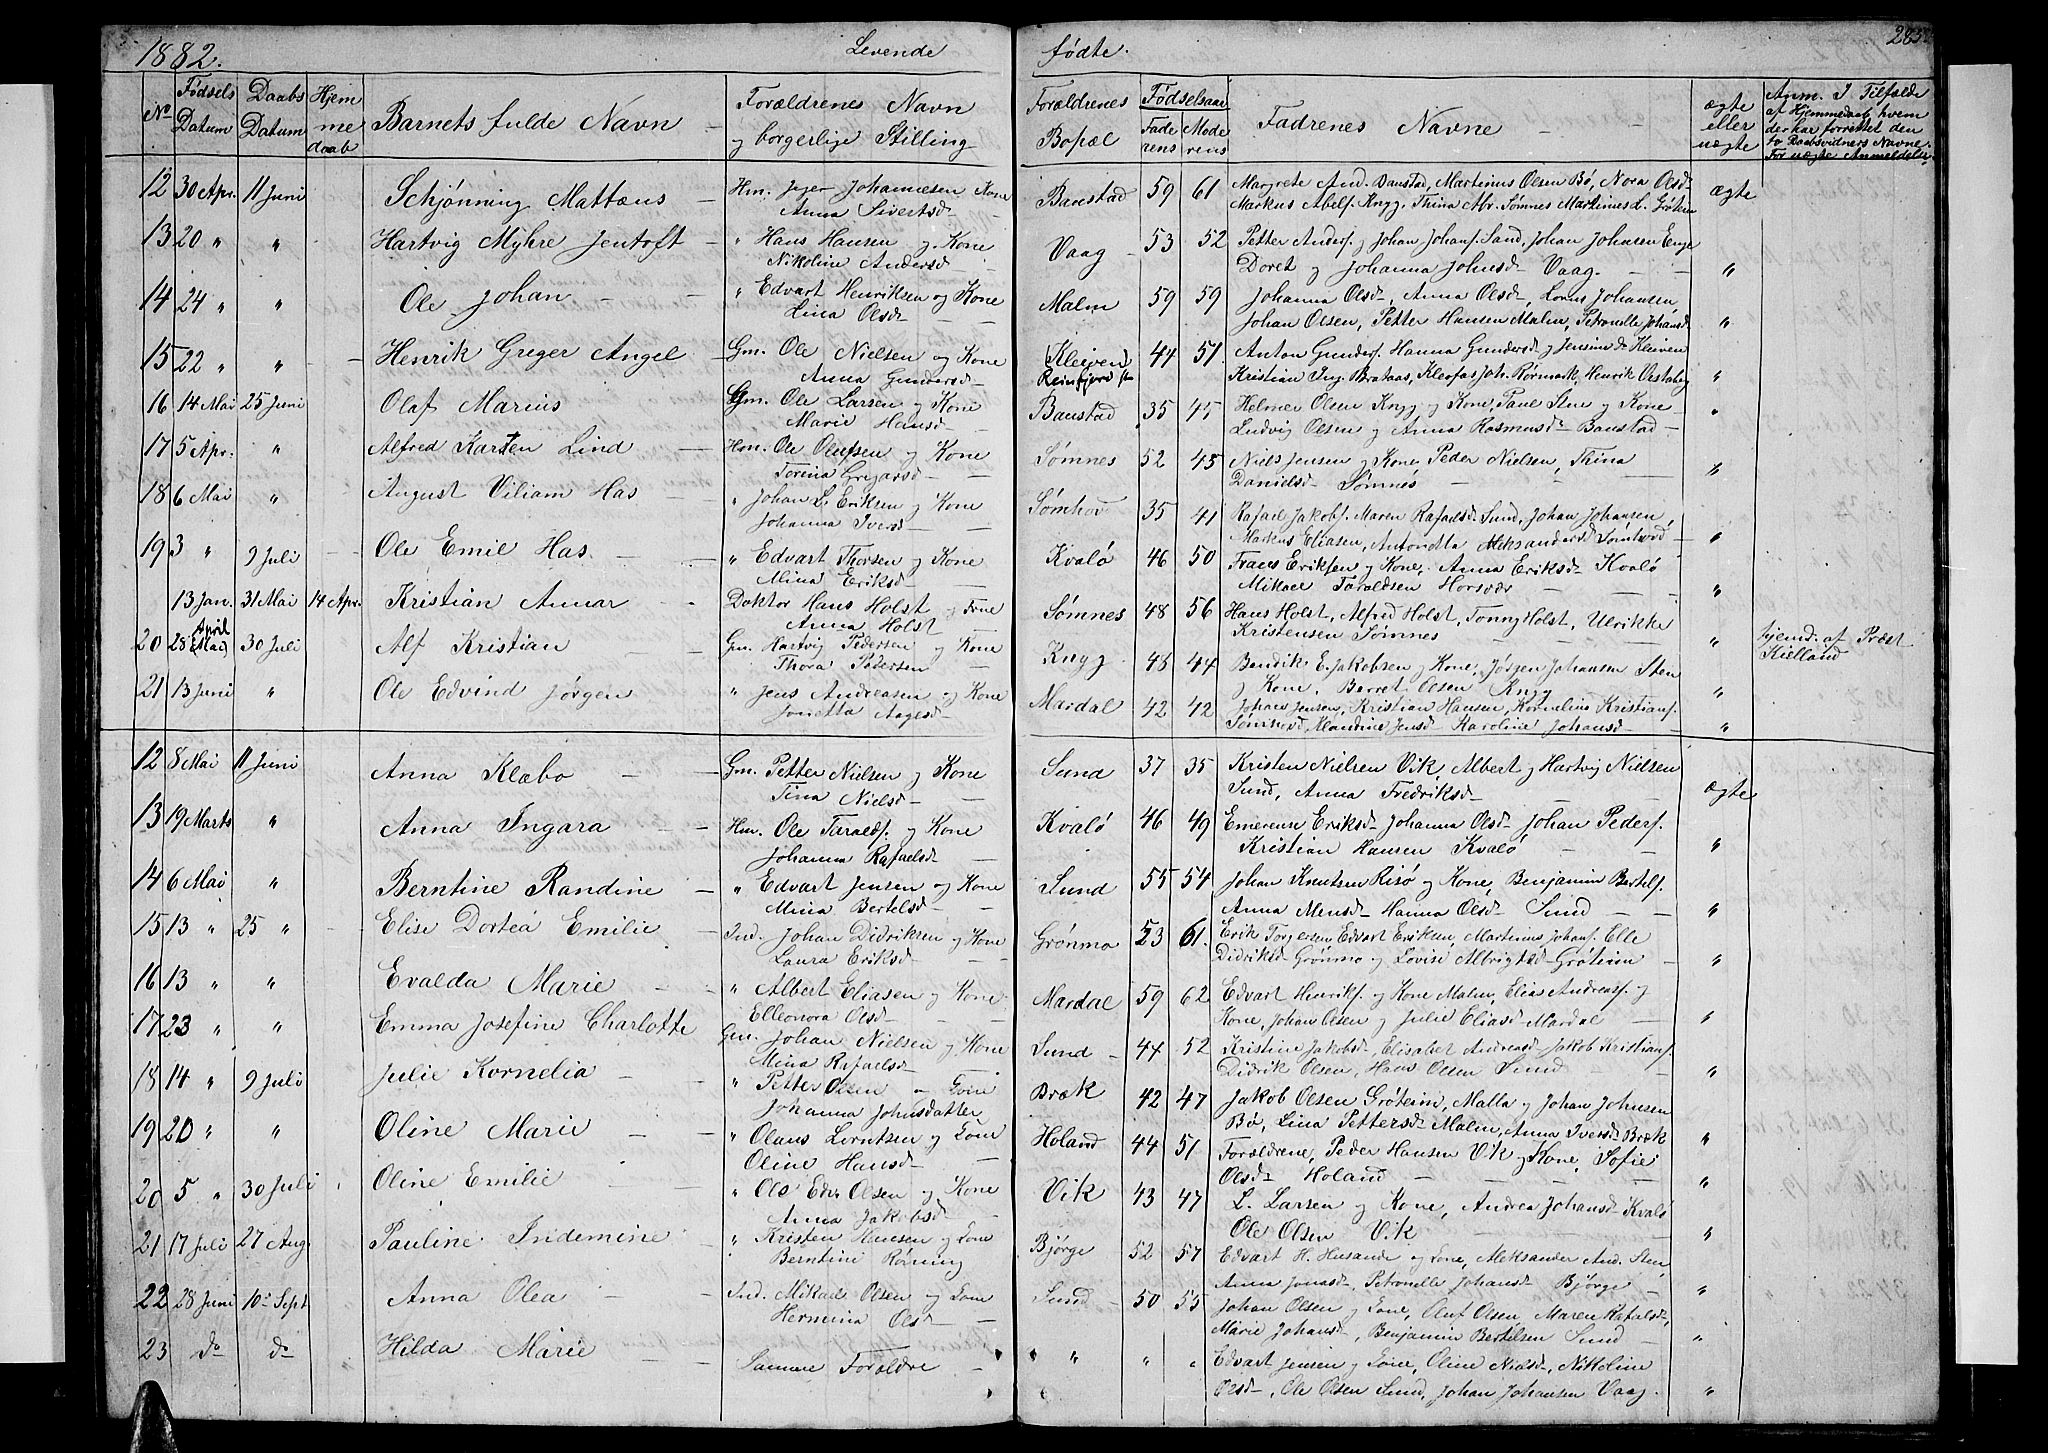 1882. Levende fødte. 285
No Fødsels Datum Daabs Datum Hjemme daab Barnets fulde Navn Forældrenes Navn og borgerlige Stilling Forældrenes Bopæl Fødselsaar Faderens Moderens Fadrenes Navne ægte eller uægte Anm. I Tilfælde af Hjemmedaab hvem der har forrettet den to Daabsvidners Navne. For uægte Anmeldelse
12 30 Apr. 11 Juni Schjønning Mattæus Hm. Johannesen Kone Baustad 59 61 Margrete And. Baustad, Martinus Olsen Bø, Nora Olsd ægte
Anna Sivertsd Markus Abels. Knyg, Thina Abr. Sømnes Martinus L. Grøtem
13 20 " " Hartvig Myhre Jentoft " Hans Hansen og Kone Vaag 53 52 Petter Anders. og Johan Johans. Sand, Johan Johnsen Enge
Nikoline Andersd Doret og Johanna Johnsd Vaag "
14 24 " " Ole Johan " Edvart Henriksen og Kone Malm 59 59 Johanna Olsd, Anna Olsd, Johansen
Lina Olsd Johan Olsen, Petter Hansen Malm, Petronelle Johansd "
15 22 " " Henrik Greger Angel Gm. Ole Nielsen og Kone Kleiven 44 51 Anton Gunders. Hanna Gundersd og Jensine do Kleiven
Anna Gundersd Reinfjord Kristian Ing. Brataas, Kleofas Joh. Rørmark, Henrik "
16 14 Mai 25 Juni Olaf Marius Gm. Ole Larsen og Kone Baustad 35 45 Helmer Olsen Knyg og Kone, Paul Sten og Kone
Marie Hansd Ludvig Olsen og Anna Rasmusd Baustad "
17 5 Apr. " Alfred Karsten Lind Hm. Ole Olufsen og Kone Sømnes 52 45 Niels Jensen og Kone, Peder Nielsen, Thina
Torina Gregarsd Danielsd Sømnes "
18 6 Mai " August Viliam Has " Johan L. Eriksen og Kone Sømhov 35 41 Rafael Jakobs. Maren Rafaelsd Sund, Johan Johansen,
Johanna Iversd Markus Eliasen, Antonetta Aleksandersd Sømhovd "
19 3 " 9 Juli Ole Emil Has " Edvart Thorsen og Kone Kvalø 46 50 Frans Eriksen og Kone, Anna Eriksd Kvalø
Mina Eriksd Mikael Taraldsen Horsvær "
13 Jan. 31 Mai 14 Apr. Kristian Annar Doktor Hans Holst og Frue Sømnes 48 56 Hans Holst, Alfred Holst, Tonny Holst, Ulrikke
Anna Holst Kristensen Sømnes " hjemd. af Præst Kielland
20 28 April Mai 30 Juli Alf Kristian Gm. Hartvig Pedersen og Kone Knyg 48 44 Bendik E. Jakobsen og Kone, Jørgen Johansen Sten
Thora Petersen og Kone, Berret Olsen Knyg "
21 13 Juni " Ole Edvind Jørgen " Jens Andreasen og Kone Mardal 42 42 Johan Jensen, Kristian Hansen, Kornelius Kristians.
Jonetta Aagesd Sømhovd, Klaudine Jensd Karoline Johansd "
12 8 Mai 11 Juni Anna Klæbo Gm. Petter Nielsen og Kone Sund 37 35 Kristen Nielsen Vik, Albert og Hartvig Nielsen
Tina Nielsd Sund, Anna Fredriksd ægte
13 19 Marts " Anna Ingara Hm. Ole Taralds. og Kone Kvalø 46 49 Emerense Eriksd Johanna Olsd Johan Peders.
Johanna Rafaelsd Kristian Hansen Kvalø "
14 6 Mai " Berntine Randine " Edvart Jensen og Kone Sund 55 54 Johan Knutsen Risø og Kone, Benjamin Bertels.
Mina Bertelsd Anna Mensd Hanna Olsd Sund "
15 13 " 25 " Elise Dortea Emilie Ind. Johan Didriksen og Kone Grønmo 53 61. Erik Torgersen Edvart Eriksen, Martinus Johans. Elle
Laura Eriksd Didriksd Grønmo og Lovise Albrigtsd Grøteim "
16 13 " " Evalda Marie " Albert Eliasen og Kone Mardal 59 62 Edvart Henriks. og Kone Malm, Elias Andreass. og
Elleonora Olsd Kone, Johan Olsen og Julie Eliasd Mardal "
17 23 " " Emma Josefine Charlotte Gm. Johan Nielsen og Kone Sund 44 52 Kristine Jakobsd, Elisabet Andreasd Jakob Kristians.
Mina Rafaelsd Didrik Olsen, Hans Olsen Sund "
18 14 " 9 Juli Julie Kornelia " Petter Olsen Kone Bræk 42 47 Jakob Olsen Grøteim, Malla og Johan Johnsen
Johanna Johnsdatter Bø, Lina Pettersd Malm, Anna Iversd Bræk "
19 20 " " Oline Marie " Olaus Lorntsen og Kone Holand 44 51 Forældrene, Peder Hansen Vik og Kone, Sofie
Oline Hansd Olsd Holand "
20 5 " 30 Juli Oline Emilie " Ole Edv. Olsen og Kone Vik 43 47 L. Larsen og Kone, Andrea Johansd Kvalø
Anna Jakobsd Ole Olsen Vik "
21 17 Juli 27 Aug. Pauline Indemine " Kristen og Kone Bjørge 52 57 Edvart H. Husande og Kone, Aleksander And. Sten,
Berntine Rørning Anna Jonasd Petronelle Johansd Bjørge "
22 28 Juni 10 Sept. Anna Olea Ind. Mikael Olsen og Kone Sund 50 55 Johan Olsen og Kone, Oluf Olsen, Maren Rafaelsd,
Hermina Olsd Marie Johansd, Benjamin Bertelsen Sund "
23 do do Hilda Marie Samme Forældre " " " Edvart Jensen og Kone, Oline Nielsd, Nikoline
Olsd, Ole Olsen Sund, Johan Johansen Vaag. "